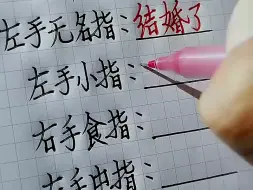 左手无名指：结婚了
左手小指：
右手食指：
左手中指：